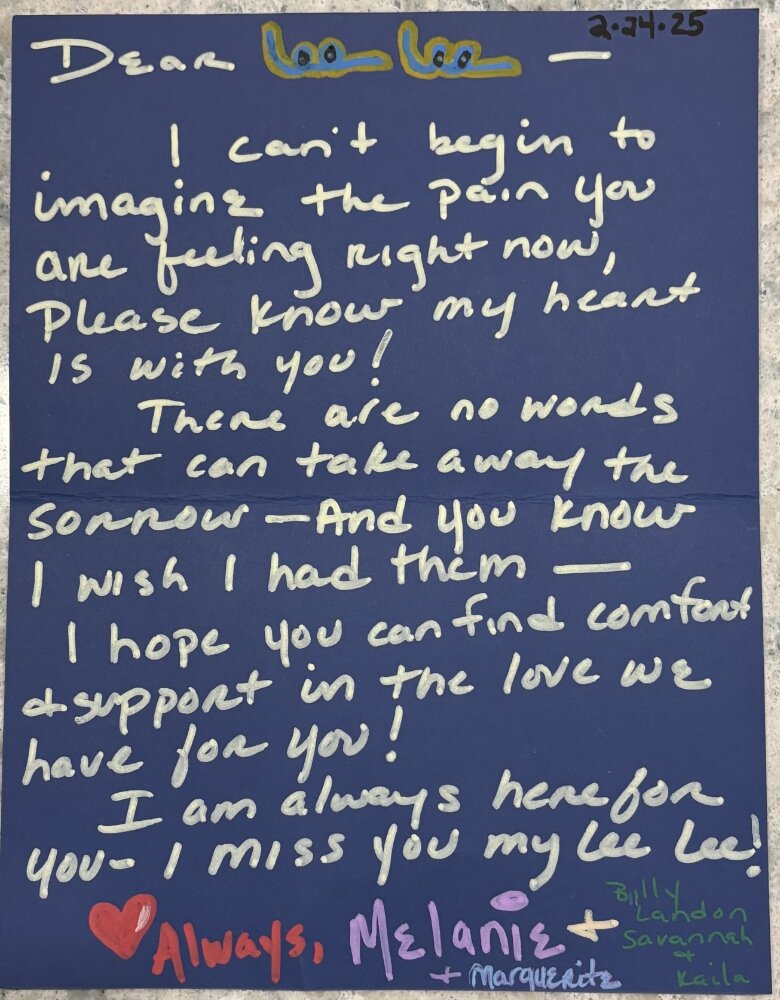 2.24.25
Dear Lee Lee —
I can't begin to
imagine the pain you
are feeling right now,
Please know my heart
is with you!
There are no words
that can take away the
sorrow — And you know
I wish I had them —
I hope you can find comfort
& support in the love we
have for you!
I am always here for
you - I miss you my Lee Lee!
Always, Melanie +
+ Marguerite
Billy
Landon
Savannah
+
Kaila